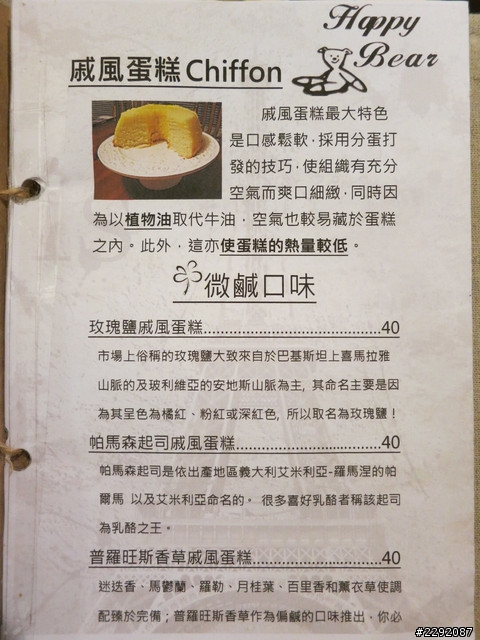 Happy
Bear
戚風蛋糕 Chiffon
戚風蛋糕最大特色
是口感鬆軟，採用分蛋打
發的技巧，使組織有充分
空氣而爽口細緻，同時因
為以植物油取代牛油，空氣也較易藏於蛋糕
之內。此外，這亦使蛋糕的熱量較低。
微鹹口味
玫瑰鹽戚風蛋糕..................................40
市場上俗稱的玫瑰鹽大致來自於巴基斯坦上喜馬拉雅
山脈的及玻利維亞的安地斯山脈為主, 其命名主要是因
為其呈色為橘紅、粉紅或深紅色, 所以取名為玫瑰鹽！
帕馬森起司戚風蛋糕............................40
帕馬森起司是依出產地區義大利艾米利亞-羅馬涅的帕
爾馬 以及艾米利亞命名的。 很多喜好乳酪者稱該起司
為乳酪之王。
普羅旺斯香草戚風蛋糕.........................40
迷迭香、馬鬱蘭、羅勒、月桂葉、百里香和薰衣草使調
配臻於完備；普羅旺斯香草作為偏鹹的口味推出，你必
#2292087